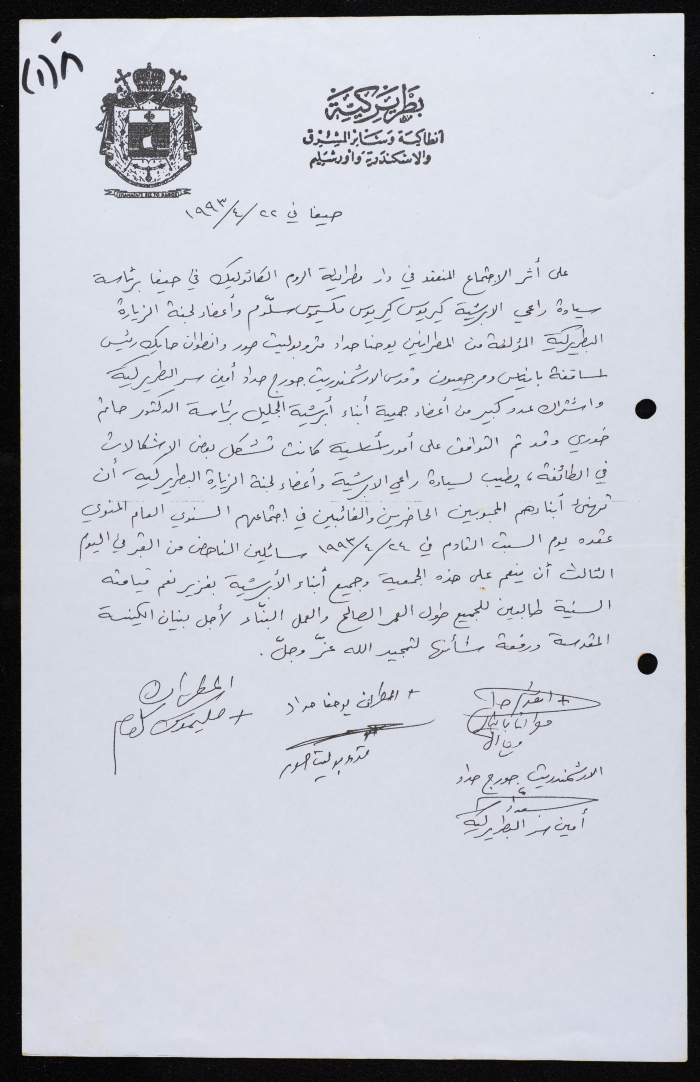 ٨ (١)
بطريركية
انطاكية وسائر المشرق
والاسكندرية واورشليم
حيفا في ٢٢/٤/١٩٩٣
على أثر الاجتماع المنعقد في دار مطرانية الروم الكاثوليك في حيفا برئاسة
سيادة راعي الابرشية كيريوس كيريوس مكسيموس سلّوم وأعضاء لجنة الزيارة
البطريركية المؤلفة من المطرانين يوحنا حداد متروبوليت صور وانطوان حايك رئيس
أساقفة بانياس ومرجعيون وقدس الارشمندريت جورج حداد أمين سر البطريركية
واشتراك عدد كبير من أعضاء جمعية أبناء أبرشية الجليل برئاسة الدكتور حاتم
خوري وقد تم التوافق على أمور أساسية كانت تشكل بعض الإشكالات
في الطائفة، يطيب لسيادة راعي الابرشية وأعضاء لجنة الزيارة البطريركية أن
تهنئ أبناءهم المحبوبين الحاضرين والغائبين في اجتماعهم السنوي العام المنوي
عقده يوم السبت القادم في ٢٤/٤/١٩٩٣ سائلين الناهض من القبر في اليوم
الثالث أن ينعم على هذه الجمعية وجميع أبناء الأبرشية بغزير نعم قيامته
السنية طالبين للجميع طول العمر الصالح والعمل البنّاء لأجل بنيان الكنيسة
المقدسة ورفعة شأنها لتمجيد الله عزّ وجلّ.
المطران
+ مكسيموس سلوم
+ المطران يوحنا حداد
متروبوليت صور
الارشمندريت جورج حداد
أمين سر البطريركية